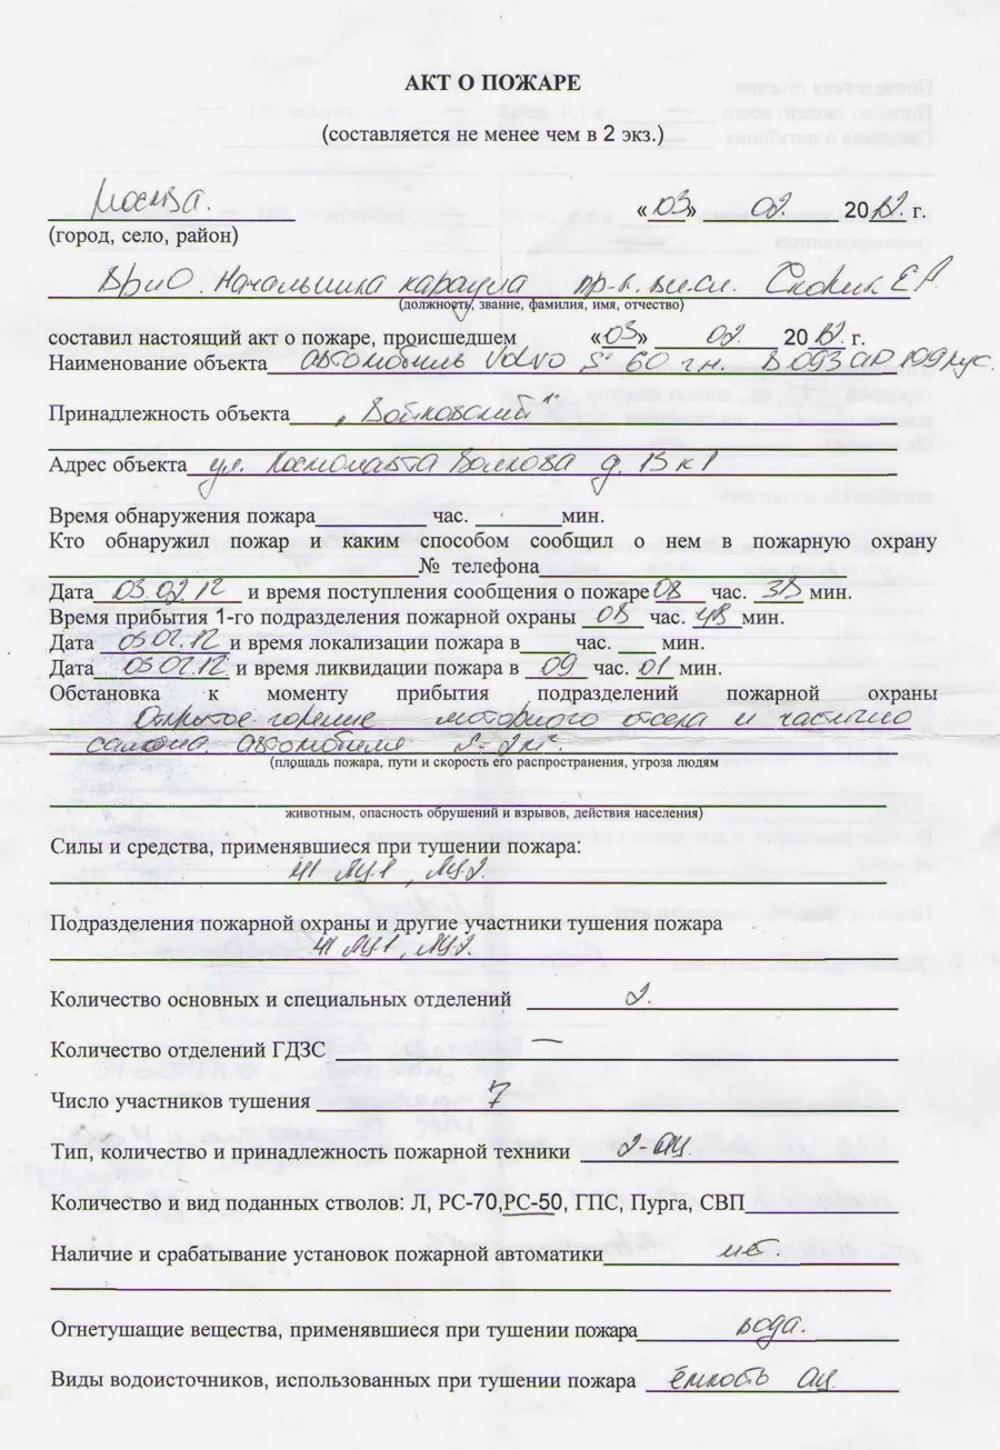 АКТ О ПОЖАРЕ
(составляется не менее чем в 2 экз.)
Москва. «03» 02. 2012. г.
(город, село, район)
ВрИО. Начальника караула пр-к. вн.сл. Скорик Е.А.
(должность, звание, фамилия, имя, отчество)
составил настоящий акт о пожаре, происшедшем «03» 02 2012. г.
Наименование объекта автомобиль Volvo S 60 г.н. В 093 199 рус.
Принадлежность объекта „Войковский"
Адрес объекта ул. Космонавта Волкова д. 13 к 1
Время обнаружения пожара час. мин.
Кто обнаружил пожар и каким способом сообщил о нем в пожарную охрану
№ телефона
Дата 03.02.12 и время поступления сообщения о пожаре 08 час. мин.
Время прибытия 1-го подразделения пожарной охраны 08 час. 48 мин.
Дата 03.02.12 и время локализации пожара в час. мин.
Дата 03.02.12. и время ликвидации пожара в 09 час. 01 мин.
Обстановка к моменту прибытия подразделений пожарной охраны
Открытое горение моторного отсека и частично
салона автомобиля S=2м².
(площадь пожара, пути и скорость его распространения, угроза людям
животным, опасность обрушений и взрывов, действия населения)
Силы и средства, применявшиеся при тушении пожара:
41 АЦ1, АЦ2.
Подразделения пожарной охраны и другие участники тушения пожара
41 АЦ1, АЦ2.
Количество основных и специальных отделений 2.
Количество отделений ГДЗС —
Число участников тушения 7
Тип, количество и принадлежность пожарной техники 2-АЦ.
Количество и вид поданных стволов: Л, РС-70,РС-50, ГПС, Пурга, СВП
Наличие и срабатывание установок пожарной автоматики нет.
Огнетушащие вещества, применявшиеся при тушении пожара вода.
Виды водоисточников, использованных при тушении пожара ёмкость АЦ.